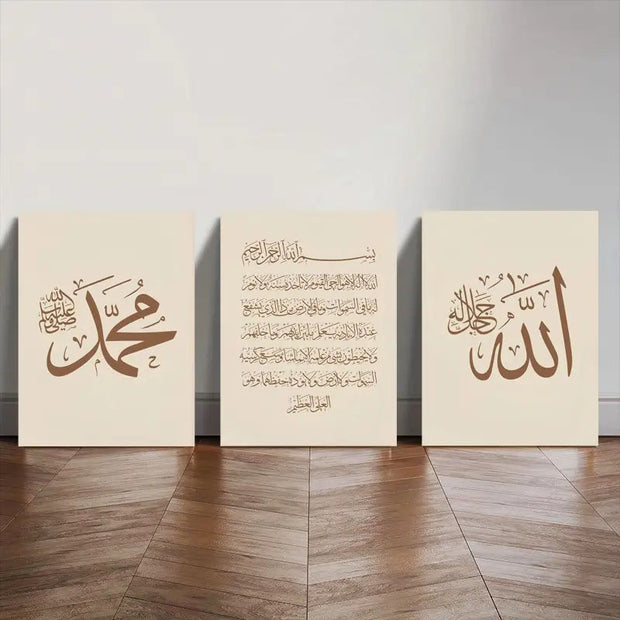 الله جل جلاله
بسم الله الرحمن الرحيم
الله لا إله إلا هو الحي القيوم لا تأخذه سنة ولا نوم
له ما في السموات وما في الأرض من ذا الذي يشفع
عنده إلا بإذنه يعلم ما بين أيديهم وما خلفهم
ولا يحيطون بشيء من علمه إلا بما شاء وسع كرسيه
السموات والأرض ولا يئوده حفظهما وهو
العلي العظيم
محمد صلى الله عليه وسلم